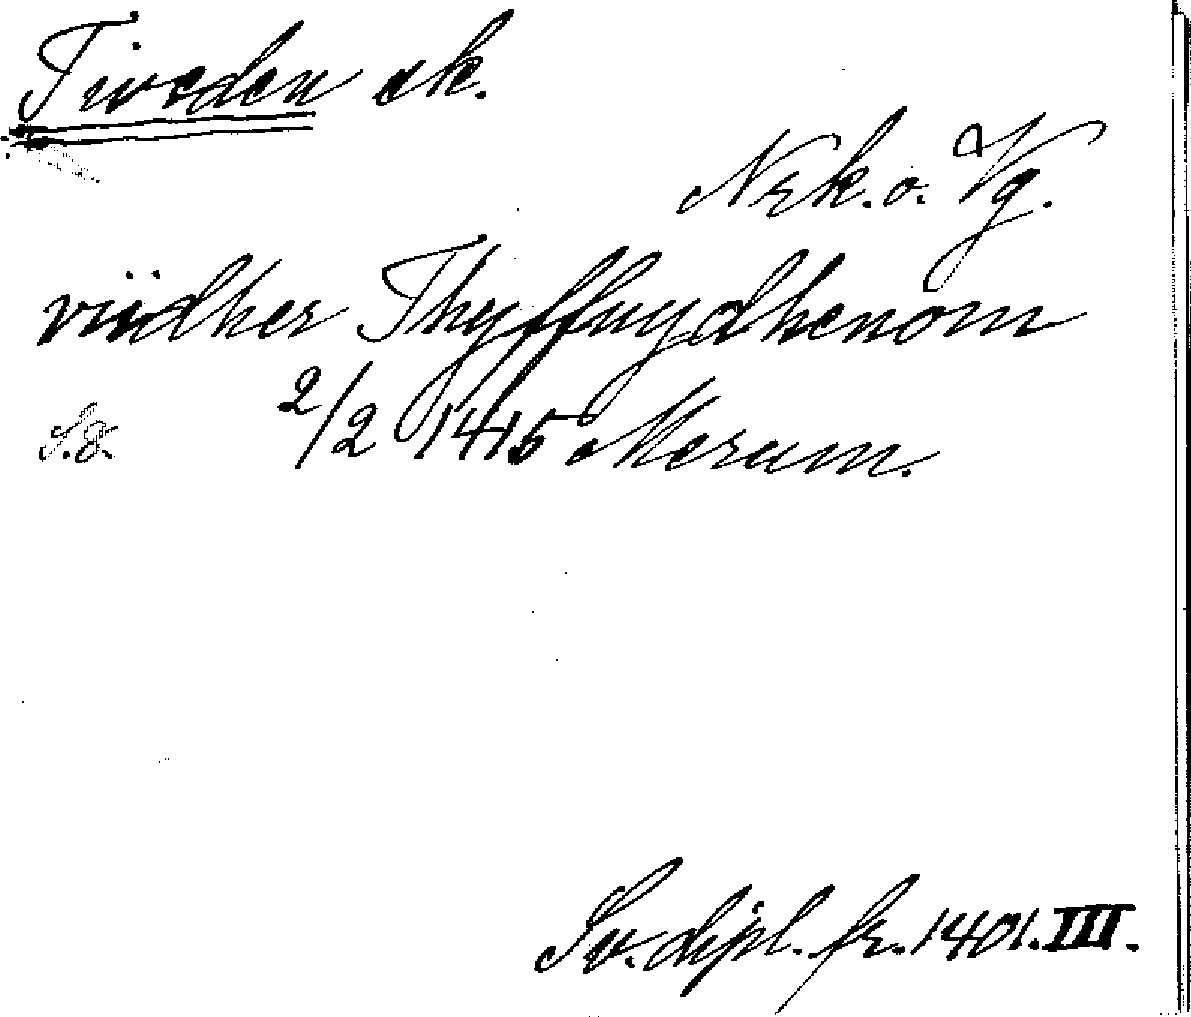 Tiveden sk.
Nrk. o. Vg.
viidher Thyffwydhenom
S. 8. 2/2 1415 Merum.
Sv. dipl. fr. 1401. III.